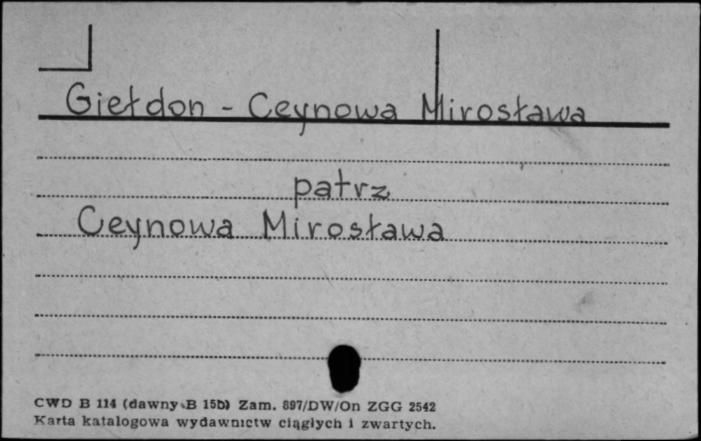 Giełdon - Ceynowa Mirosława
patrz
Ceynowa Mirosława
CWD B 114 (dawny B 15b) Zam. 897/DW/On ZGG 2542
Karta katalogowa wydawnictw ciągłych i zwartych.